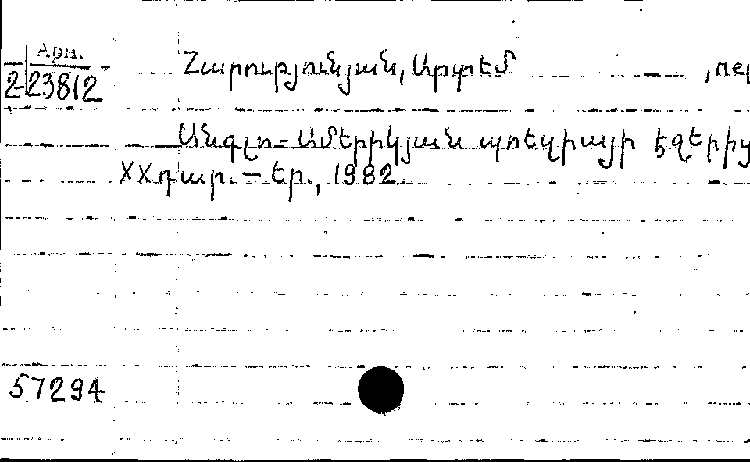 Արտ.
2 23812
Հարությունյան, Արտեմ , ռե
Անգլո-Ամերիկյան պոեզիայի էջերից
XX դար. — Եր., 1982.
57294